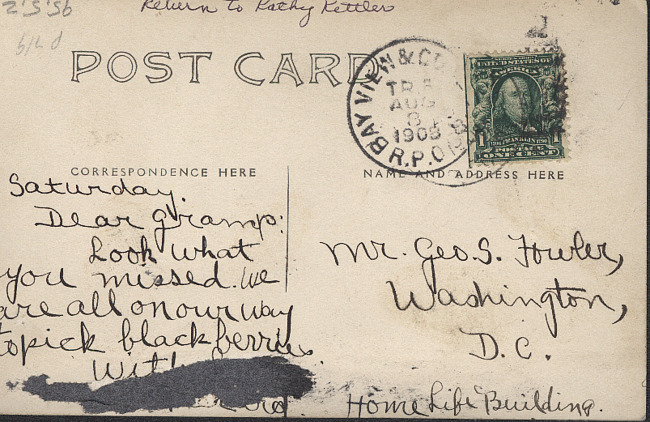 2'5'56
Return to Kathy Kettler
POST CARD
BAY VIEW &
TR
AUG
8
1908
R.P.O.
UNITED STATES OF
AMERICA
1 FRANKLIN 1
POSTAGE
ONE CENT
CORRESPONDENCE HERE
NAME AND ADDRESS HERE
Saturday.
Dear Gramp:
Look what
you missed. We
are all on our way
to pick blackberries.
With
Mr. Geo. S. Fowler,
Washington,
D.C.
Home Life Building.